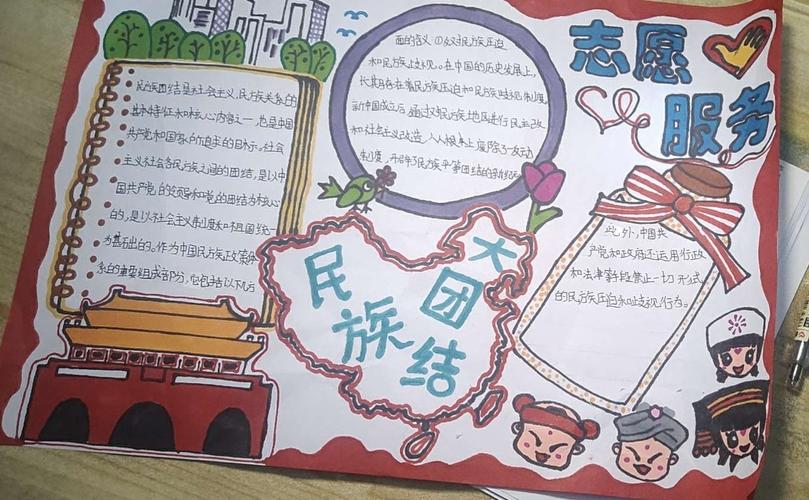 志愿
服务
民族团结是社会主义民族关系的
基本特征和核心内容之一,也是中国
共产党和国家所追求的目标。社会
主义社会各民族之间的团结,是以中
国共产党的领导和党的团结为核心
的,是以社会主义制度和祖国统一
为基础的。作为中国民族政策体
系的重要组成部分,它包括以下几方
面的含义:①反对民族压迫
和民族歧视。在中国的历史发展上,
长期存在着民族压迫和民族歧视制度,
新中国成立后,通过对民族地区进行民主改
和社会主义改造,从根本上废除了
制度,开辟了民族平等团结的新纪元
民族
大团结
此外,中国共
产党和政府还运用行政
和法律等手段禁止一切形式
的民族压迫和歧视行为。